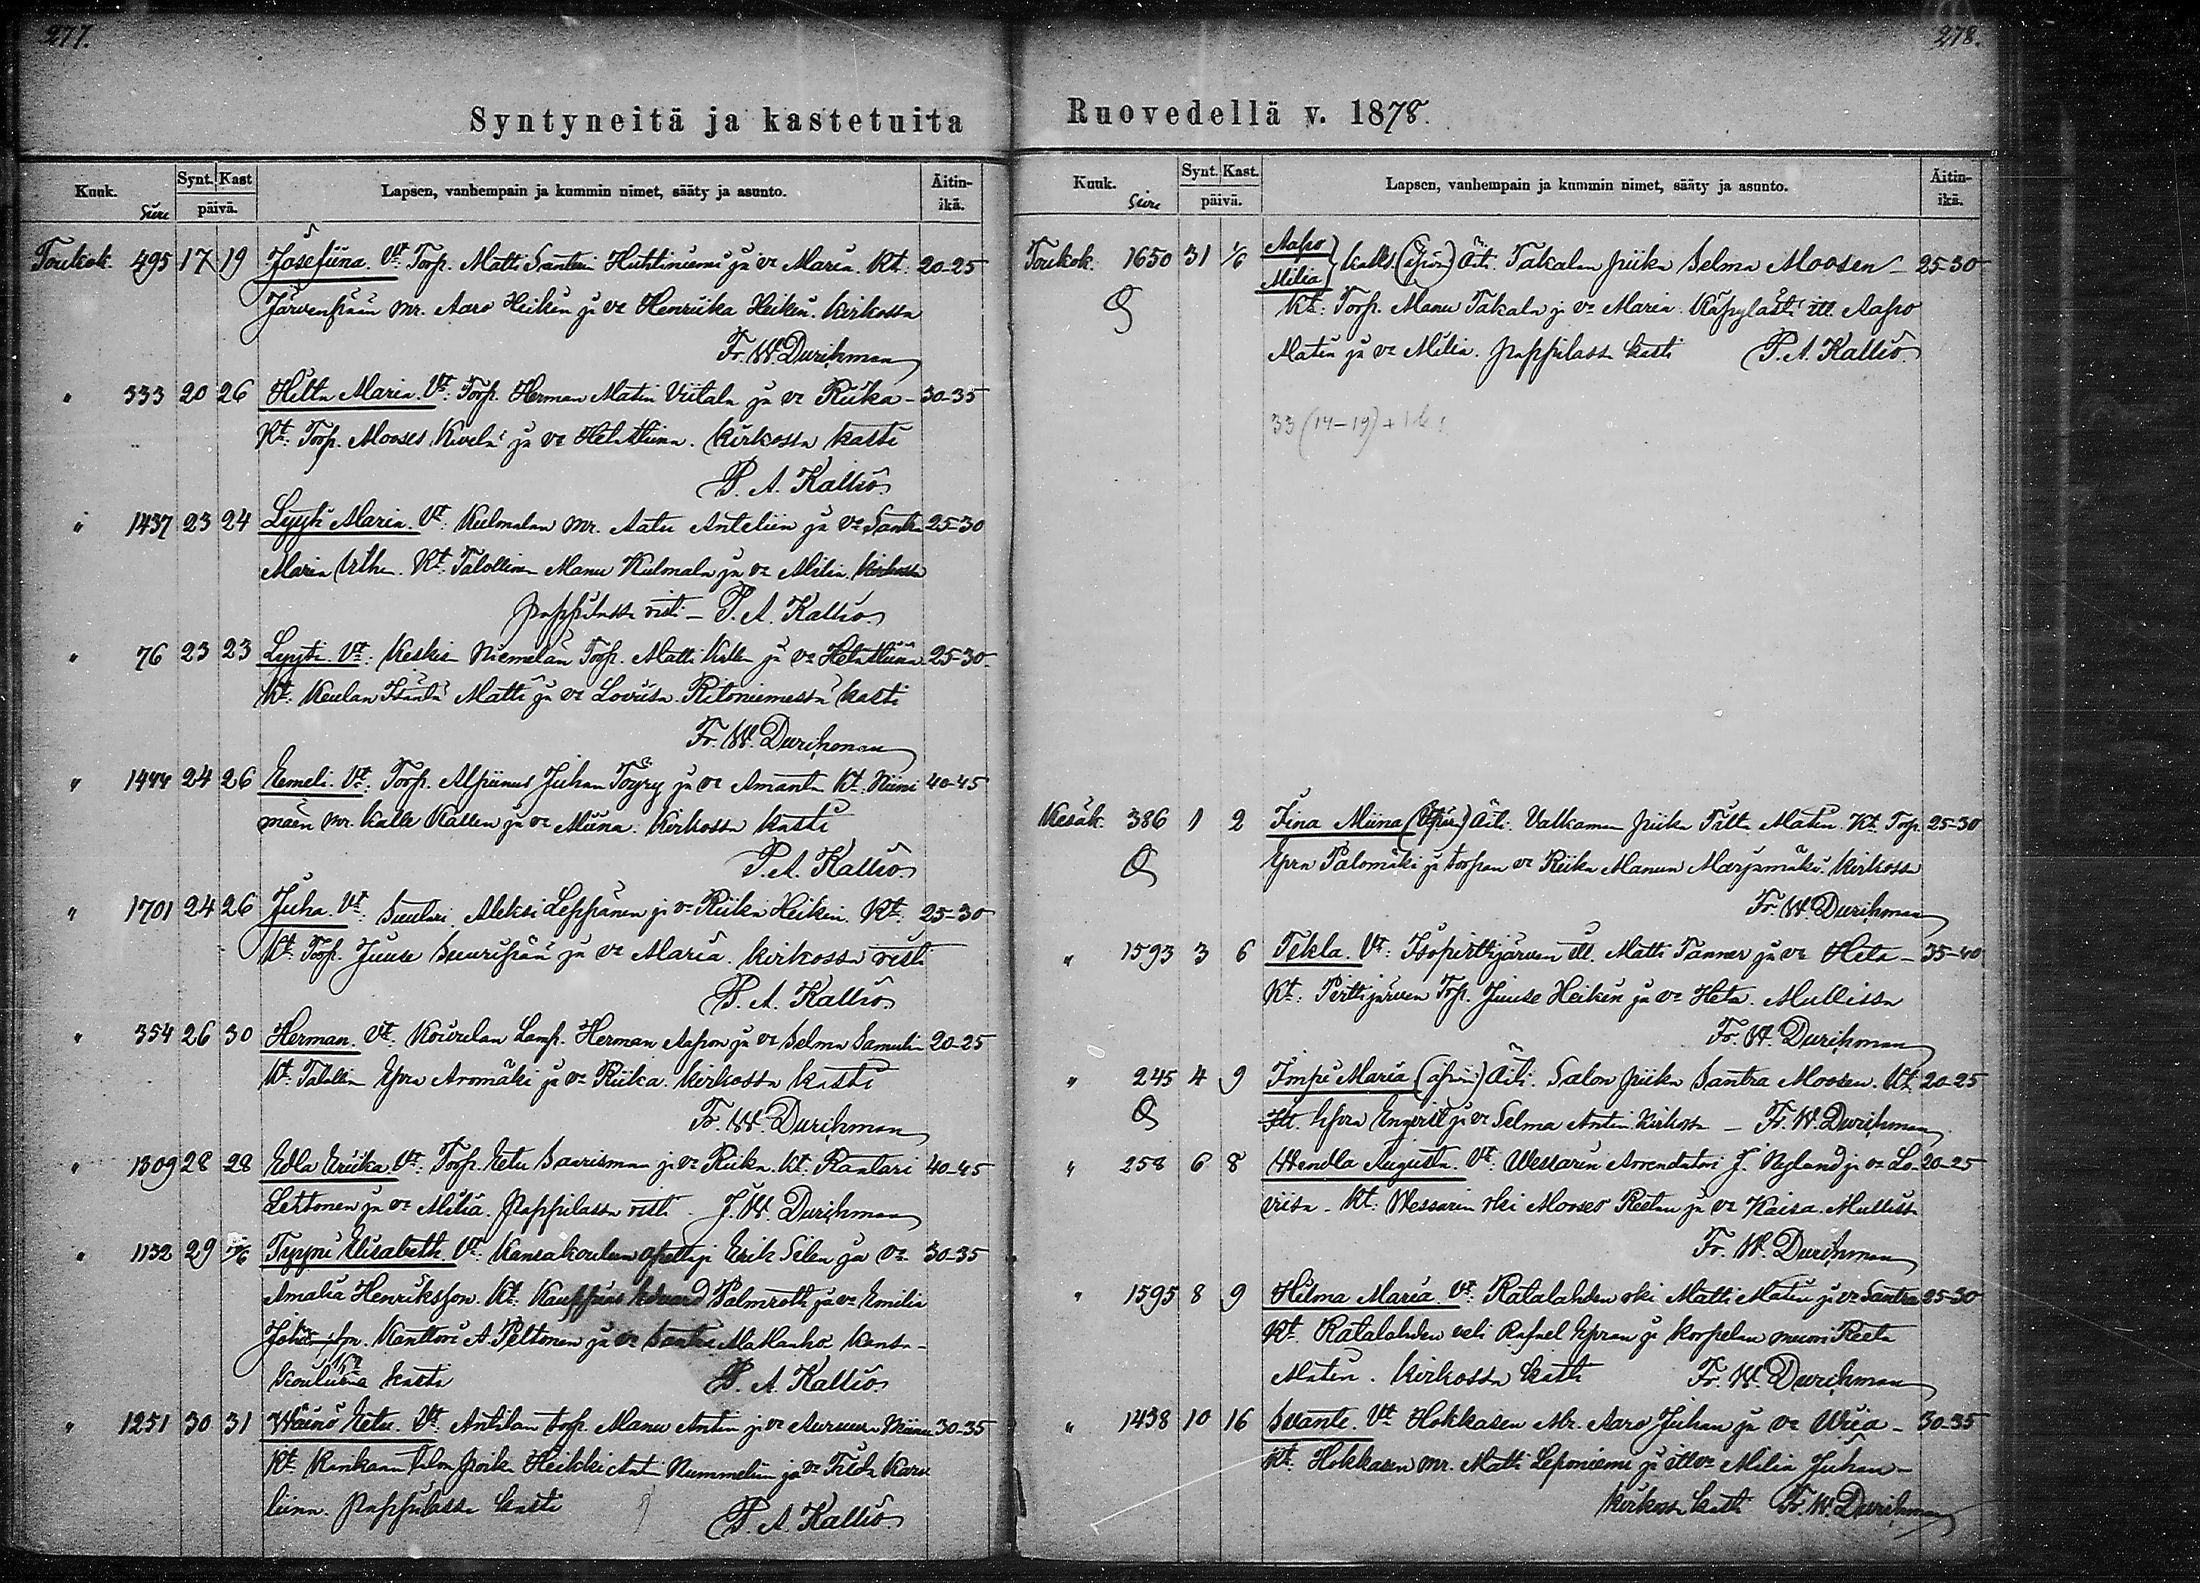 277.
Syntyneitä ja kastetuita
Kuuk. Sivu Synt. Kast päivä. Lapsen, vanhempain ja kummin nimet, sääty ja asunto. Äitin-ikä.
Toukok. 495 17 19 Josefiina. Vt. Torp. Matti Santeri Huhtiniemi ja vo Maria. Kt: 20-25
Järvenpään mr. Aaro Heikin ja vo Henriika Heikin. Kirkossa
Fr. W. Durchman
" 333 20 26 Hilta Maria. Vt: Torp. Herman Matin Viitala ja vo Riika - 30-35
Kt: Torp. Mooses Kivelä ja vo Helmiina. Kirkossa kasti
P. A. Kallio
" 1437 23 24 Lyyti Maria. Vt: Kulmalan mr. Aatu Anteliin ja vo Santra 25-30
Maria Kt: Talollinen Manu Kulmala ja vo Milia. Kirkossa
pappilassa risti - P. A. Kallio
" 76 23 23 Lyyti. Vt: Keski Niemelän Torp. Matti Kallen ja vo Helmiina 25-30
Kt: Keulan Isäntä Matti ja vo Lovisa. Ritoniemessä kasti
Fr. W. Durchman
" 1444 24 26 Eemeli. Vt: Torp. Alpiinus Juhan Töyry ja vo Amanta Kt. Niini 40-45
mäen mr. Kalle Kallen ja vo Miina. Kirkossa kasti
P. A. Kallio
" 1701 24 26 Juha. Vt: Suutari Aleksi Leppänen ja vo Riika Heikin. Kt: 25-30
Kt. Torp. Juuse Suuripää ja vo Maria. Kirkossa risti
P. A. Kallio
" 354 26 30 Herman. Vt. Koivulan Lamp. Herman Aapon ja vo Selma Samulin 20-25
Kt: Talollin Epra Aromäki ja vo Riika. Kirkossa kasti
Fr. W. Durchman
" 1309 28 28 Edla Eriika. Vt. Torp. Eetu Saarisman ja vo Riika. Kt. Rantari 40-45
Lehtonen ja vo Milia. Pappilassa risti - J. W. Durchman
" 1132 29 Tyyni Elisabeth. Vt: Kansakoulun opettaja Erik Selen ja vo 30-35
Amalia Henriksson. Kt: Kauppias Edvard Palmroth ja vo Emilia
Kanttori A. Peltonen ja vo Santra Kansa-
koulussa kasti P. A. Kallio
" 1251 30 31 Wäinö Eetu. Vt. Anttilan torp. Manu Antin ja vo Miina 30-35
Kt. poika Heikki Anti Nummelin ja vo Tilda Karo
liina. Pappilassa kasti P. A. Kallio
278.
Ruovedellä v. 1878.
Kuuk. Sivu Synt. Kast. päivä. Lapsen, vanhempain ja kummin nimet, sääty ja asunto. Äitin-ikä.
Toukok. 1650 31 1/6 Aapo Milia } kakst (äpär.) Äiti. Takalan piika Selma Moosen - 25-30
Kt: Torp. Manu Takala ja vo Maria. Käpylästä itll. Aapo
Matin ja vo Milia. Pappilassa kasti P. A. Kallio
33 (14-19)
Kesäk. 386 1 2 Fina Miina (äpär.) Äiti. Valkaman piika Tilta Matin. Kt. Torp. 25-30
Epra Palomäki ja torpan vo Riika Manun Marjamäki. Kirkossa
Fr. W. Durchman
" 1593 3 6 Tekla. Vt: Isopirttijärven itll. Matti Tanner ja vo Heta - 35-40
Kt: Pirttijärven Trp. Juuse Heikin ja vo Heta. Mullissa
Fr. W. Durchman
" 245 4 9 Impi Maria (äpär.) Äiti. Salon piika Santra Moosen. Kt: 20-25
Itll. Epra ja vo Selma Antin. Kirkossa - Fr. W. Durchman
" 258 6 8 Wendla Augusta. Vt: Wessarin Arrendatori J. Nyland ja vo Lo- 20-25
viisa. Kt: Wessarin rki Mooses Reetan ja vo Kaisa. Mullissa
Fr. W. Durchman
" 1595 8 9 Hilma Maria. Vt: Ratalahden rki Matti Matin ja vo Santra 25-30
Kt. Ratalahden veli Rafael Epran ja Korpelan muori Reeta
Matin. Kirkossa kasti Fr. W. Durchman
" 1438 10 16 Svante. Vt Hokkasen Mr. Aaro Juhan ja vo Wiia - 30-35
Kt. Hokkasen mr. Matti Leponiemi ja itvo Milia Juhan -
kirkossa kasti Fr. W. Durchman